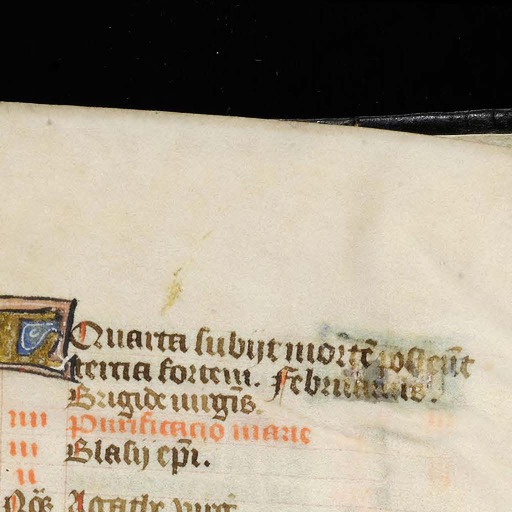 Quarta subijt mortē prosternit
tercia fortem. Februarius.
Brigide uirgīs.
iiii Purificacio marie
iii Blasij ep̄i.
ii
Nōs Agathe uirḡ